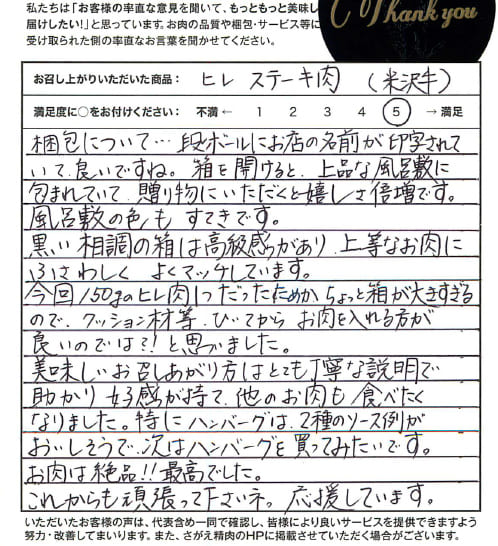 私たちは「お客様の率直な意見を聞いて、もっともっと美味し
届けしたい!」と思っています。お肉の品質や梱包・サービス等に
受け取られた側の率直なお言葉を聞かせてください。
Thank you
お召し上がりいただいた商品： ヒレ ステーキ肉 (米沢牛)
満足度に○をお付けください： 不満 ← 1 2 3 4 5 → 満足
梱包について… 段ボールにお店の名前が印字されて
いて良いですね。箱を開けると、上品な風呂敷に
包まれていて、贈り物にいただくと嬉しさ倍増です。
風呂敷の色も すてきです。
黒い相調の箱は高級感があり、上等なお肉に
ふさわしく よくマッチしています。
今回150gのヒレ肉1つだったためか、ちょっと箱が大きすぎる
ので、クッション材等、ひいてから お肉を入れる方が
良いのでは?!と思いました。
美味しいお召しあがり方はとても丁寧な説明で
助かり 好感が持て、他のお肉も 食べたく
なりました。特にハンバーグは、2種のソース例が
おいしそうで、次はハンバーグを買ってみたいです。
お肉は絶品!!最高でした。
これからも頑張って下さいネ。応援しています。
いただいたお客様の声は、代表含め一同で確認し、皆様により良いサービスを提供できますよう
努力・改善してまいります。また、さがえ精肉のHPに掲載させていただく場合がございます。